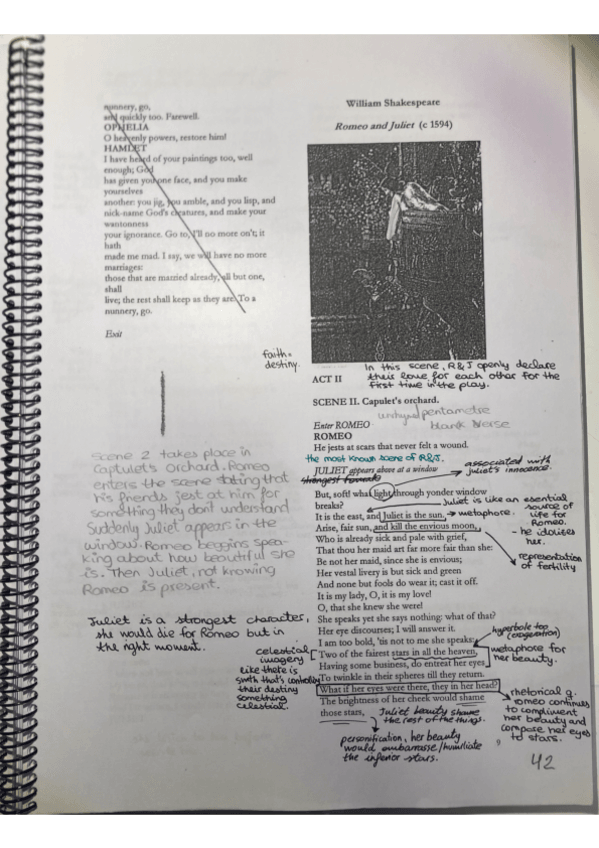 nunnery, go,
and quickly too. Farewell.
OPHELIA
O heavenly powers, restore him!
HAMLET
I have heard of your paintings too, well
enough; God
has given you one face, and you make
yourselves
another: you jig, you amble, and you lisp, and
nick-name God's creatures, and make your
wantonness
your ignorance. Go to, I'll no more on't; it
hath
made me mad. I say, we will have no more
marriages:
those that are married already, all but one,
shall
live; the rest shall keep as they are. To a
nunnery, go.
Exit
Scene 2 takes place in
Captulet's orchard. Romeo
enters the scene stating that
his friends jest at him for
something they don't understand
Suddenly Juliet appears in the
window. Romeo beggins spea-
king about how beautiful she
is. Then Juliet, not knowing
Romeo is present.
Juliet is a strongest character,
she would die for Romeo but in
the right moment.
celestial
imagery
like there is
smth that's controling
their destiny
something
celestial.
William Shakespeare
Romeo and Juliet (c 1594)
faith =
destiny.
In this scene, R&J openly declare
their love for each other for the
first time in the play.
ACT II
SCENE II. Capulet's orchard.
unrhymed pentametre
blank verse
Enter ROMEO
ROMEO
He jests at scars that never felt a wound.
the most known scene of R&J.
JULIET appears above at a window
strongest
associated with
juliot's innocence.
But, soft! what light through yonder window
breaks?
Juliet is like an esential
source of
life for
Romeo.
- he idolites
her.
It is the east, and Juliet is the sun.
metaphore.
Arise, fair sun, and kill the envious moon,
Who is already sick and pale with grief,
That thou her maid art far more fair than she:
representation
of fertility
Be not her maid, since she is envious;
Her vestal livery is but sick and green
And none but fools do wear it; cast it off.
It is my lady, O, it is my love!
O, that she knew she were!
She speaks yet she says nothing: what of that?
Her eye discourses; I will answer it.
hyperbole too
(exageration)
I am too bold, 'tis not to me she speaks:
Two of the fairest stars in all the heaven,
metaphore for
her beauty.
Having some business, do entreat her eyes
To twinkle in their spheres till they return.
What if her eyes were there, they in her head?
The brightness of her cheek would shame
those stars,
rhetorical q.
Romeo continues
to compliment
her beauty and
compare her eyes
to stars.
Juliet beauty shame
the rest of the things.
personification, her beauty
would embarrasse/humiliate
the inferior stars.
42